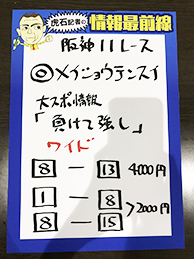 虎石記者の
情報最前線
阪神11レース
◎メイショウテンスイ
大スポ情報
「負けて強し」
ワイド
8 - 13 4000円
1 - 8
8 - 15 >2000円